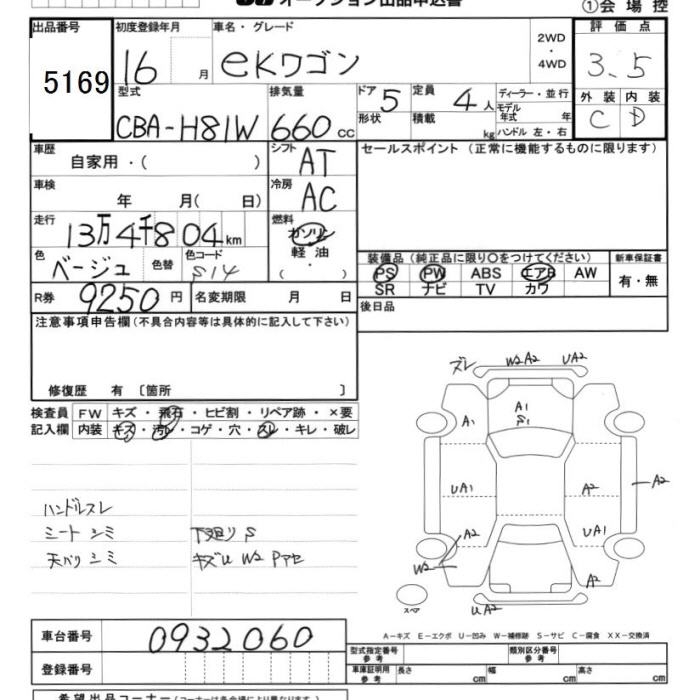 オークション出品申込書
①会場控
出品番号
5169
初度登録年月
16 月
車名・グレード
eKワゴン
2WD
・
4WD
評価点
3.5
型式
CBA-H81W
排気量
660 cc
ドア 5
形状
定員 4 人
積載 kg
ディーラー・並行
モデル
年式 年
ハンドル 左・右
外装 内装
C D
車歴
自家用・( )
シフト
AT
セールスポイント (正常に機能するものに限ります)
車検
年 月( 日)
冷房
AC
走行
13万4千804 km
燃料
ガソリン
軽油
( ・ )
色
ベージュ
色替
色コード
S14
装備品(純正品に限り○をつけてください)
PS PW ABS エアB AW
SR ナビ TV カワ
新車保証書
有・無
R券 9250 円
名変期限 月 日
後日品
注意事項申告欄(不具合内容等は具体的に記入して下さい)
修復歴 有 〔箇所 〕
検査員 FW キズ・飛石・ヒビ割・リペア跡・×要
記入欄 内装 キズ・汚れ・コゲ・穴・スレ・キレ・破レ
ハンドルスレ
シート シミ 下廻り S
天バリ シミ キズU W2 Pアセ
ズレ W2 A2 UA2
A1 A1
S1
UA1 A2 A2
A2 UA1
W2 A2
スペア UA2
A-キズ E-エクボ U-凹み W-補修跡 S-サビ C-腐食 XX-交換済
車台番号 0932060
登録番号
型式指定番号
参考
類別区分番号
参考
車庫証明用
参考
長さ cm 幅 cm 高さ cm
希望出品コーナー(コーナーは各会場により異なります)